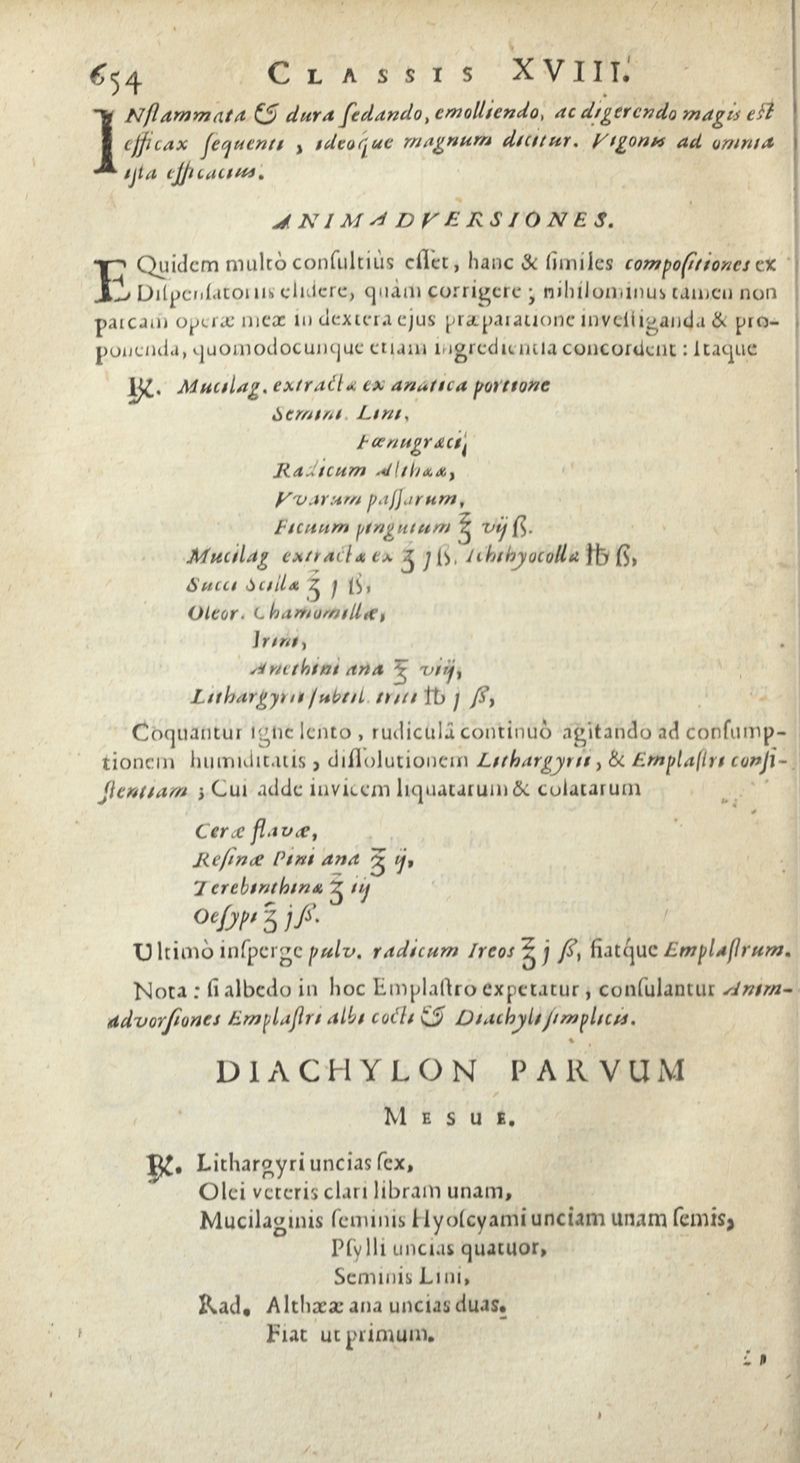 654 CLASSIS XVIII.
INflammata & dura ſedando, emolliendo, ac digerendo magis eſt
efficax ſequenti, ideoq́ue magnum dicitur. Vigonis ad omnia
iſta efficacius.
ANIMADVERSIONES.
EQuidem multò conſultiùs eſſet, hanc & ſimiles compoſitiones ex
Diſpenſatoriis elidere, quàm corrigere; nihilominus tamen non
parcam operæ meæ in dextera ejus præparatione inveſtiganda & pro-
ponenda, quomodocunque etiam ingredientia concordent: Itaque
℞. Mucilag. extractæ ex anatica portione
Semini. Lini,
Fœnugræci,
Radicum Althææ,
Vvarum paſſarum,
Ficuum pinguium ℥ vij ß.
Mucilag extractæ ex ℥ j ß. Ichthyocollæ ℔ ß,
Succi Scillæ ℥ j ß,
Oleor. Chamomillæ,
Irini,
Anethini ana ℥ viij,
Lithargyrii ſubtil. triti ℔ j ß,
Coquantur igne lento, rudiculâ continuò agitando ad conſump-
tionem humiditatis, diſſolutionem Lithargyrii, & Emplaſtri conſi-
ſtentiam; Cui adde invicem liquatarum & colatarum
Ceræ flavæ,
Reſinæ Pini ana ℥ ij,
Terebinthinæ ℥ iij
Oeſypi ℥ j ß.
Ultimò inſperge pulv. radicum Ireos ℥ j ß, fiatq́ue Emplaſtrum.
Nota: ſi albedo in hoc Emplaſtro expetatur, conſulantur Anim-
advorſiones Emplaſtri albi cocti & Diachyli ſimplicis.
DIACHYLON PARVUM
MESUE.
℞. Lithargyri uncias ſex,
Olei veteris clari libram unam,
Mucilaginis ſeminis Hyoſcyami unciam unam ſemis,
Pſylli uncias quatuor,
Seminis Lini,
Rad. Althææ ana uncias duas.
Fiat ut primum.